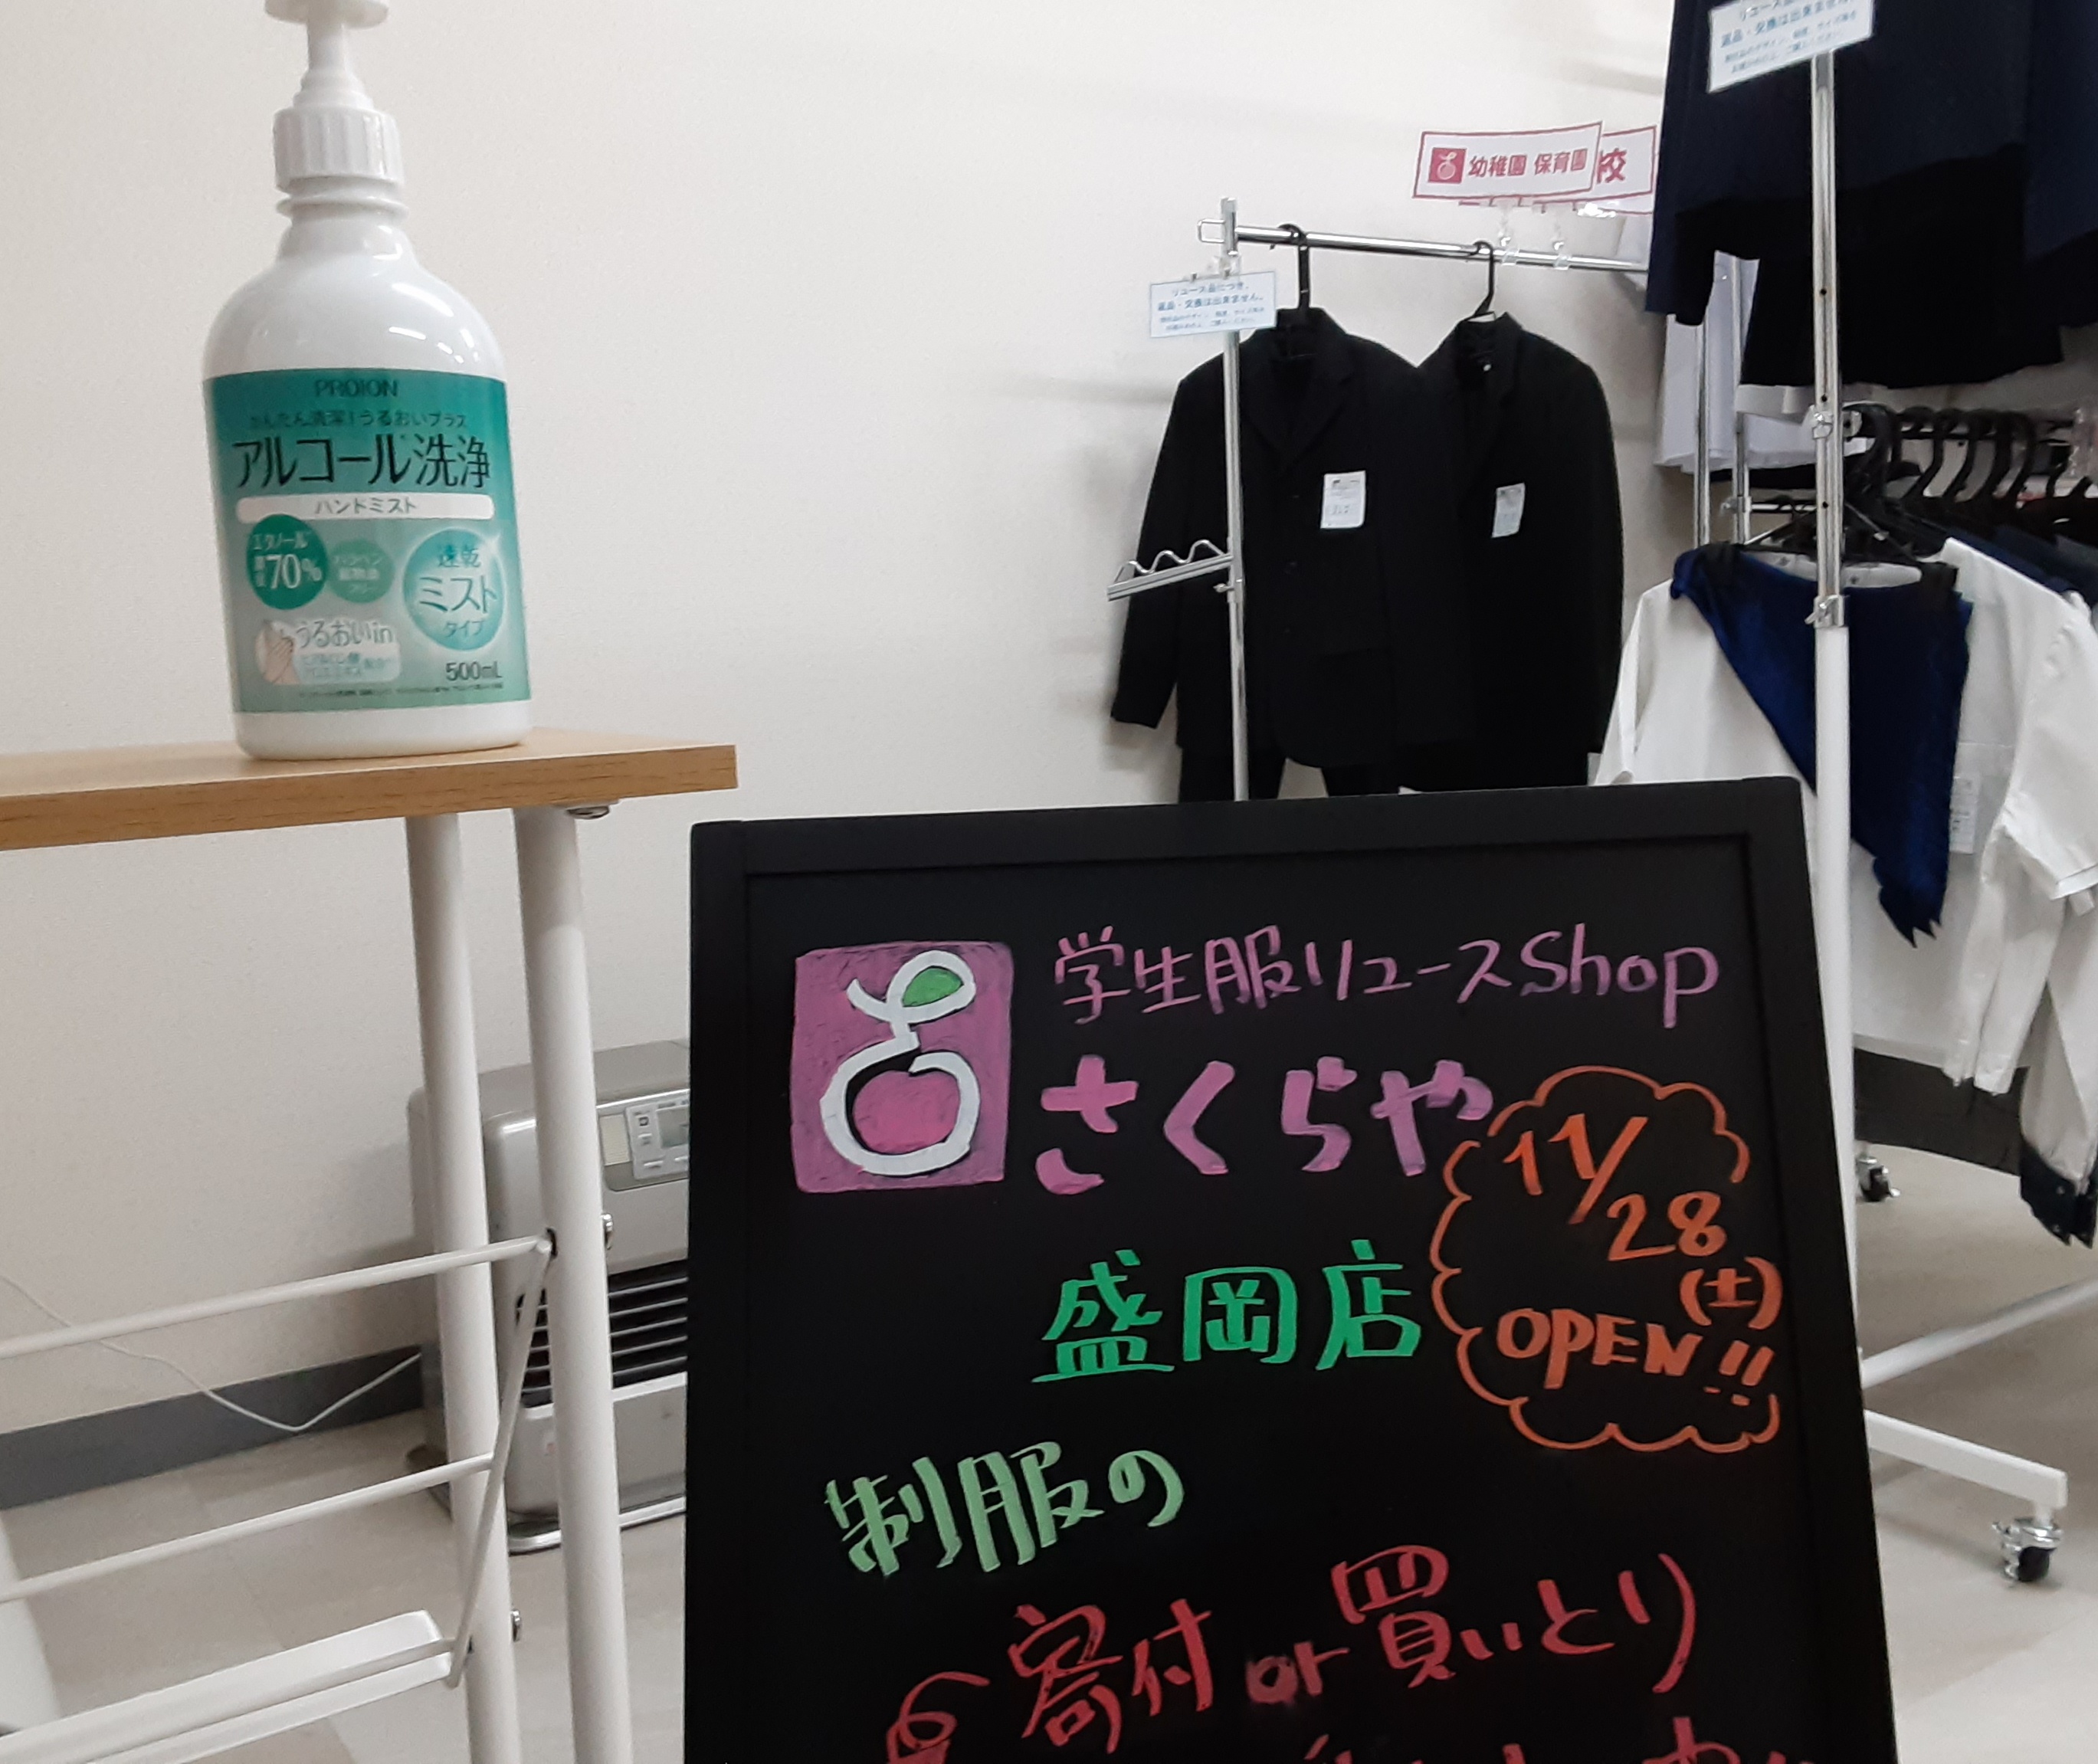 PROION
かんたん清潔!うるおいプラス
アルコール洗浄
ハンドミスト
エタノール
濃度70%
速乾
ミスト
タイプ
うるおいin
500mL
リユース品につき、
返品・交換は出来ません。
幼稚園 保育園
校
返品・交換は出来ません。
学生服リユースShop
さくらや
盛岡店
11/28
(土)
OPEN!!
制服の
寄付or買いとり